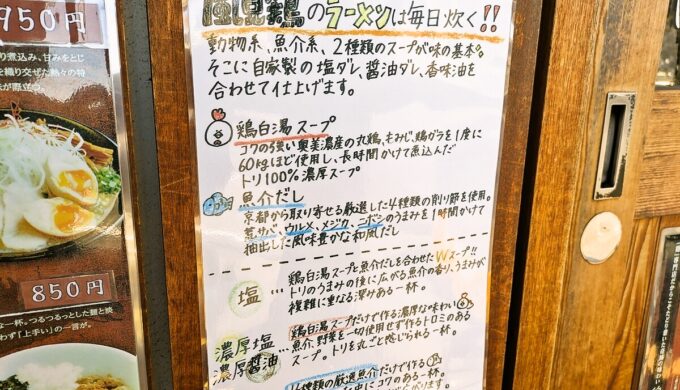 950円
り煮込み、甘みをとじ
を織り交ぜた熱々の特
850円
な一杯。つるつるっとした麺と挟
わず「上手い」の一言が。
風見鶏のラーメンは毎日炊く!!
動物系、魚介系、2種類のスープが味の基本。
そこに自家製の塩ダレ、醤油ダレ、香味油を
合わせて仕上げます。
鶏白湯スープ
コクの強い奥美濃産の丸鶏、もみじ、鶏ガラを1度に
60kgほど使用し、長時間かけて煮込んだ
トリ100%濃厚スープ
魚介だし
京都から取り寄せる厳選した4種類の削り節を使用。
荒サバ、ウルメ、メジク、ニボシのうまみを1時間かけて
抽出した風味豊かな和風だし
塩 … 鶏白湯スープと魚介だしを合わせたWスープ!!
トリのうまみの後に広がる魚介の香り、うまみが
複雑に重なる深みある一杯。
濃厚塩
濃厚醤油 … 鶏白湯スープだけで作る濃厚な味わい
魚介、野菜を一切使用せず作るトロミのある
スープ。トリを丸ごと感じられる一杯。
4種類の厳選魚介で作る
コクのある一杯。